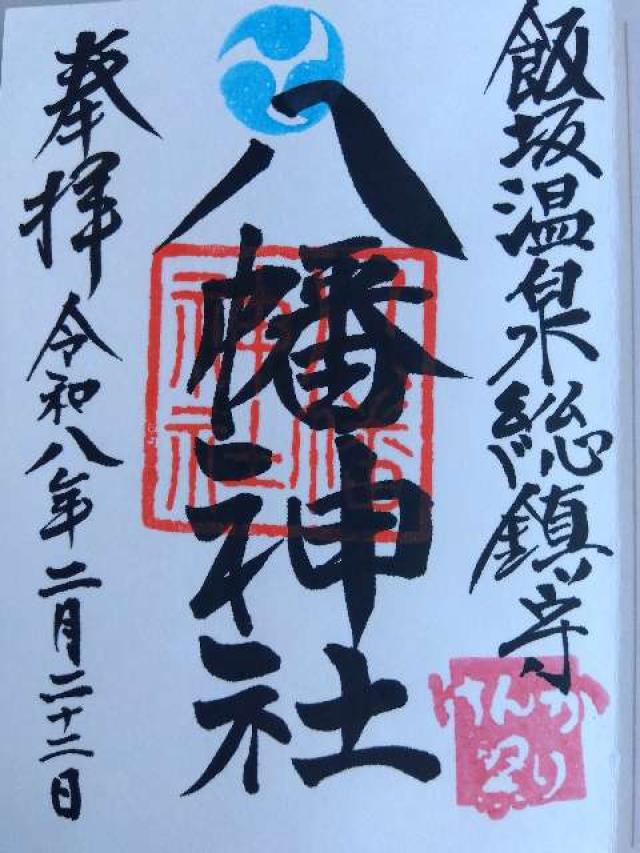 飯坂温泉総鎮守
けんか
祭り
八幡神社
八幡
神社
奉拝
令和八年二月二十二日